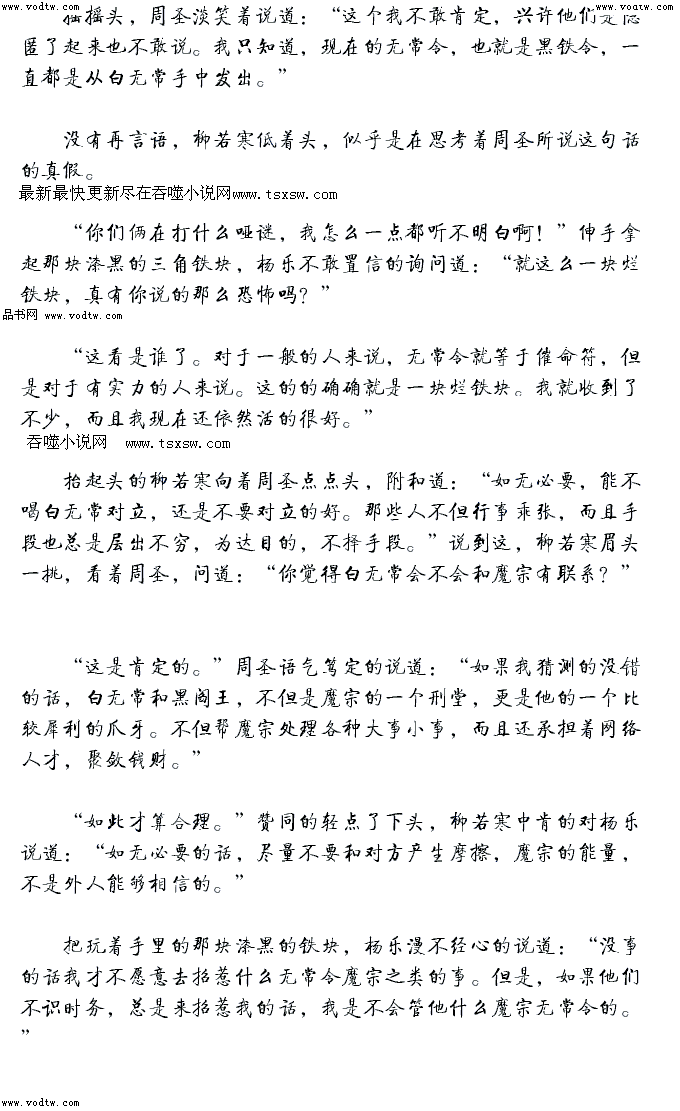 www.vodtw.com www.vodtw.com
摇摇头，周圣淡笑着说道：“这个我不敢肯定，兴许他们是隐
匿了起来也不敢说。我只知道，现在的无常令，也就是黑铁令，一
直都是从白无常手中发出。”
没有再言语，柳若寒低着头，似乎是在思考着周圣所说这句话
的真假。
最新最快更新尽在吞噬小说网www.tsxsw.com
“你们俩在打什么哑谜，我怎么一点都听不明白啊！”伸手拿
起那块漆黑的三角铁块，杨乐不敢置信的询问道：“就这么一块烂
铁块，真有你说的那么恐怖吗？”
品书网 www.vodtw.com
“这看是谁了。对于一般的人来说，无常令就等于催命符，但
是对于有实力的人来说。这的的确确就是一块烂铁块。我就收到了
不少，而且我现在还依然活的很好。”
吞噬小说网 www.tsxsw.com
抬起头的柳若寒向着周圣点点头，附和道：“如无必要，能不
喝白无常对立，还是不要对立的好。那些人不但行事乖张，而且手
段也总是层出不穷，为达目的，不择手段。”说到这，柳若寒眉头
一挑，看着周圣，问道：“你觉得白无常会不会和魔宗有联系？”
“这是肯定的。”周圣语气笃定的说道：“如果我猜测的没错
的话，白无常和黑阎王，不但是魔宗的一个刑堂，更是他的一个比
较犀利的爪牙。不但帮魔宗处理各种大事小事，而且还承担着网络
人才，聚敛钱财。”
“如此才算合理。”赞同的轻点了下头，柳若寒中肯的对杨乐
说道：“如无必要的话，尽量不要和对方产生摩擦，魔宗的能量，
不是外人能够相信的。”
把玩着手里的那块漆黑的铁块，杨乐漫不经心的说道：“没事
的话我才不愿意去招惹什么无常令魔宗之类的事。但是，如果他们
不识时务，总是来招惹我的话，我是不会管他什么魔宗无常令的。
”
www.vodtw.com www.vodtw.com